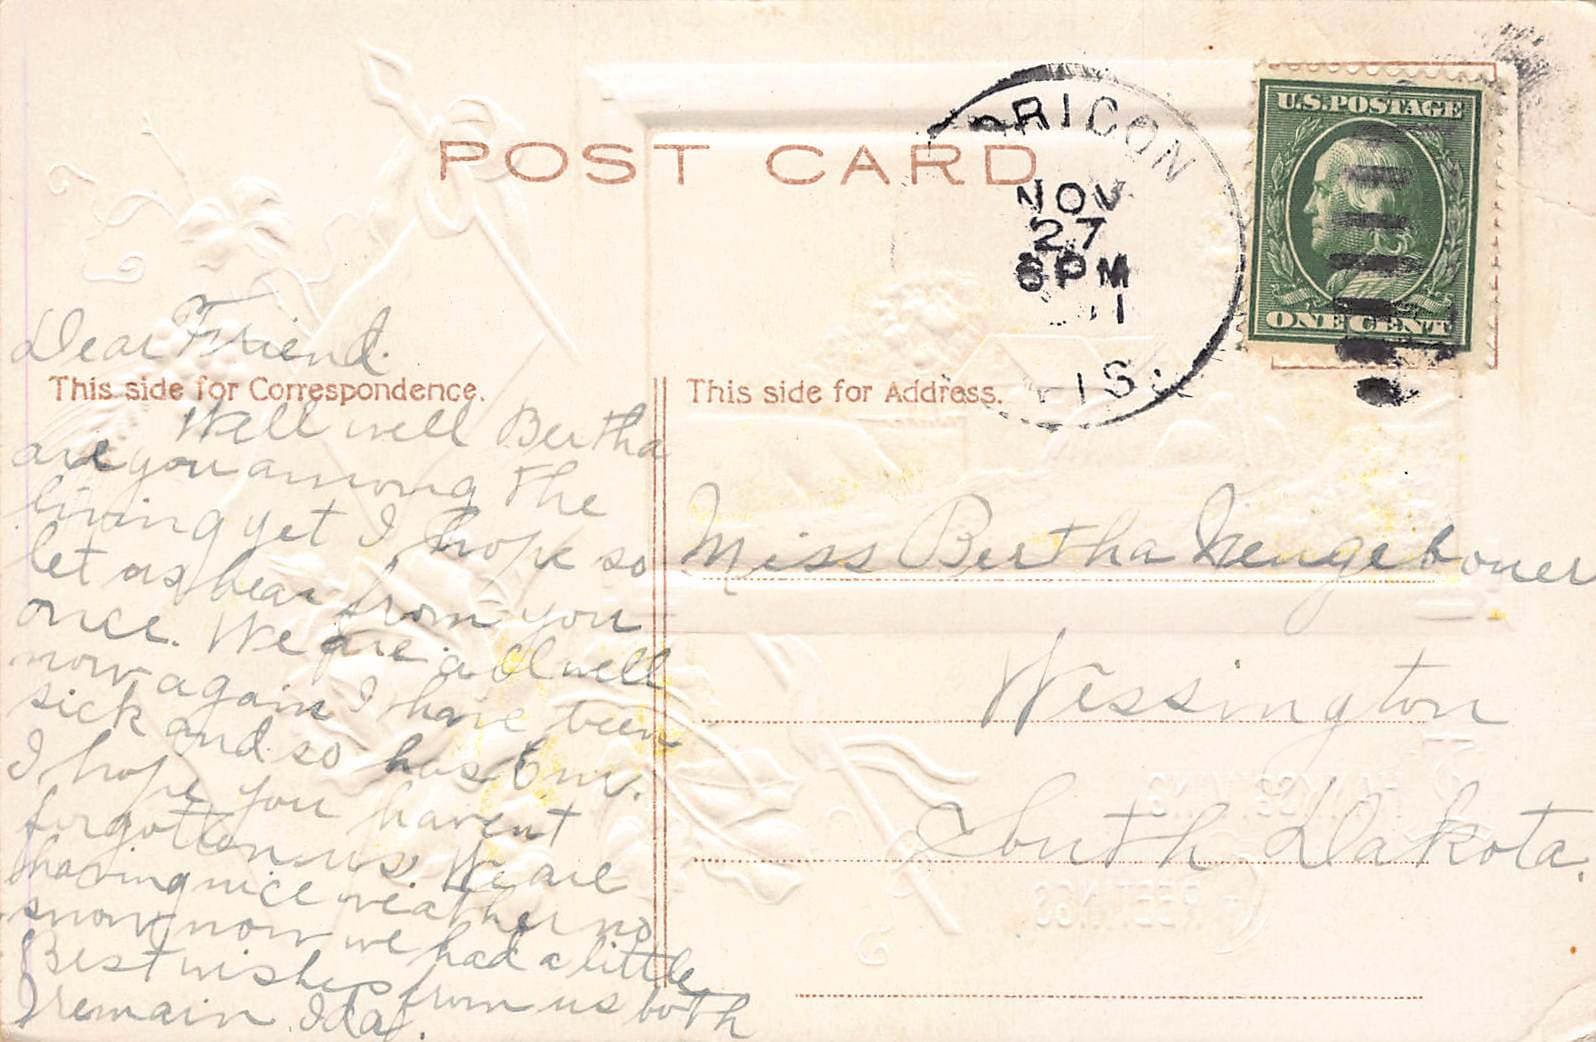 POST CARD
HORICON
NOV
27
6 PM
11
WIS.
U.S. POSTAGE
ONE CENT
This side for Correspondence.
This side for Address.
Dear Friend.
Well well Bertha
are you among the
living yet I hope so
let us hear from you
once. We are all well
now again I have been
sick and so has Em.
I hope you havent
forgotten us, We are
having nice weather no
snow now we had a little
Best wishes from us both
I remain Ida.
Miss Bertha Nengebouer
Wessington
South Dakota.
THANKSGIVING
GREETINGS